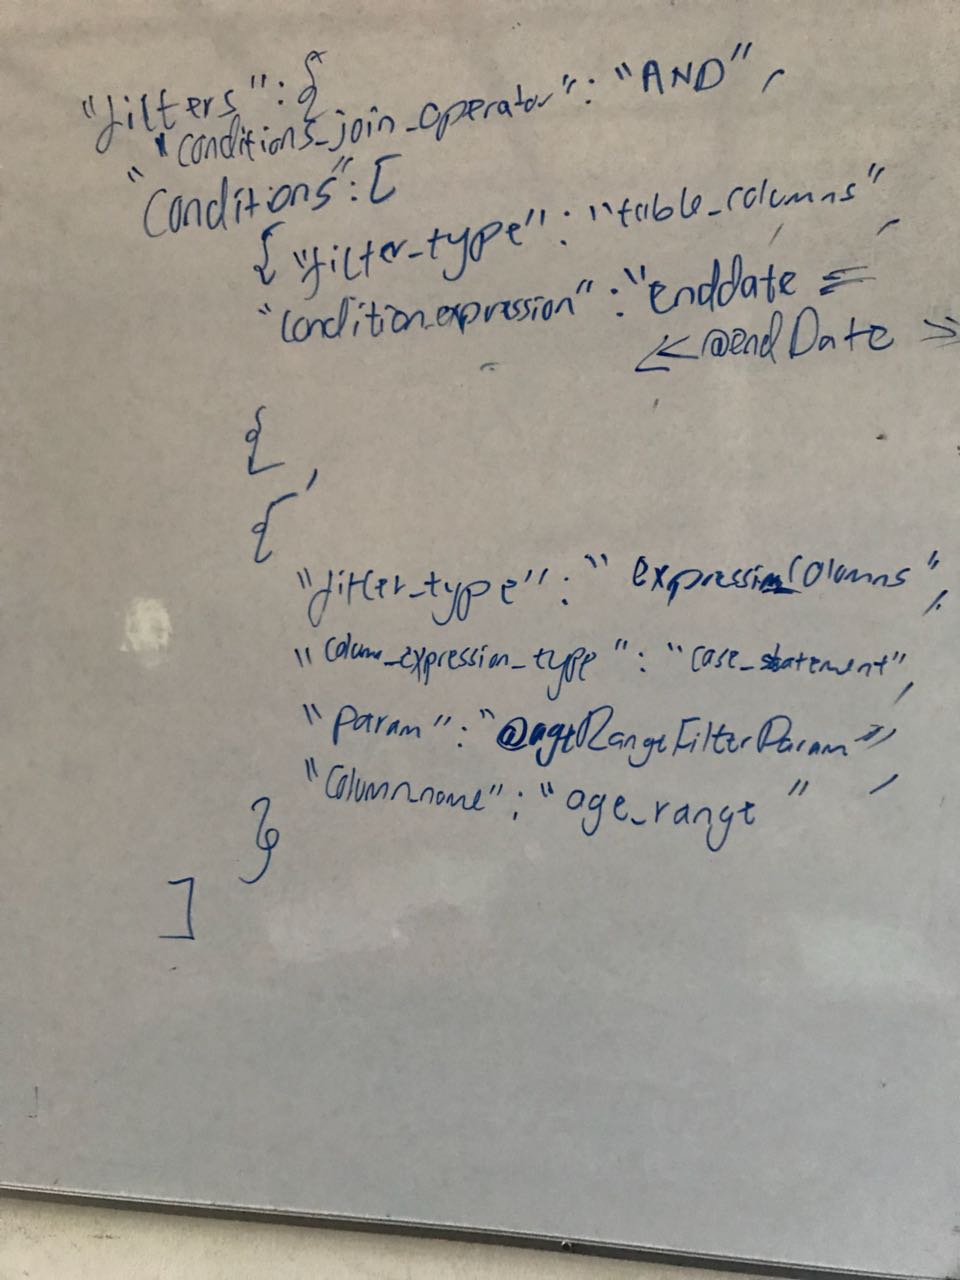 "filters": {
"conditions_join_operator": "AND",
"Conditions": [
{ "filter_type": "table_columns",
"condition_expression": "enddate =
<<@endDate>>
{,
{
"filter_type": "expression_columns",
"column_expression_type": "case_statement",
"Param": "@ageRangeFilterParam",
"Column_name": "age_range"
}
]